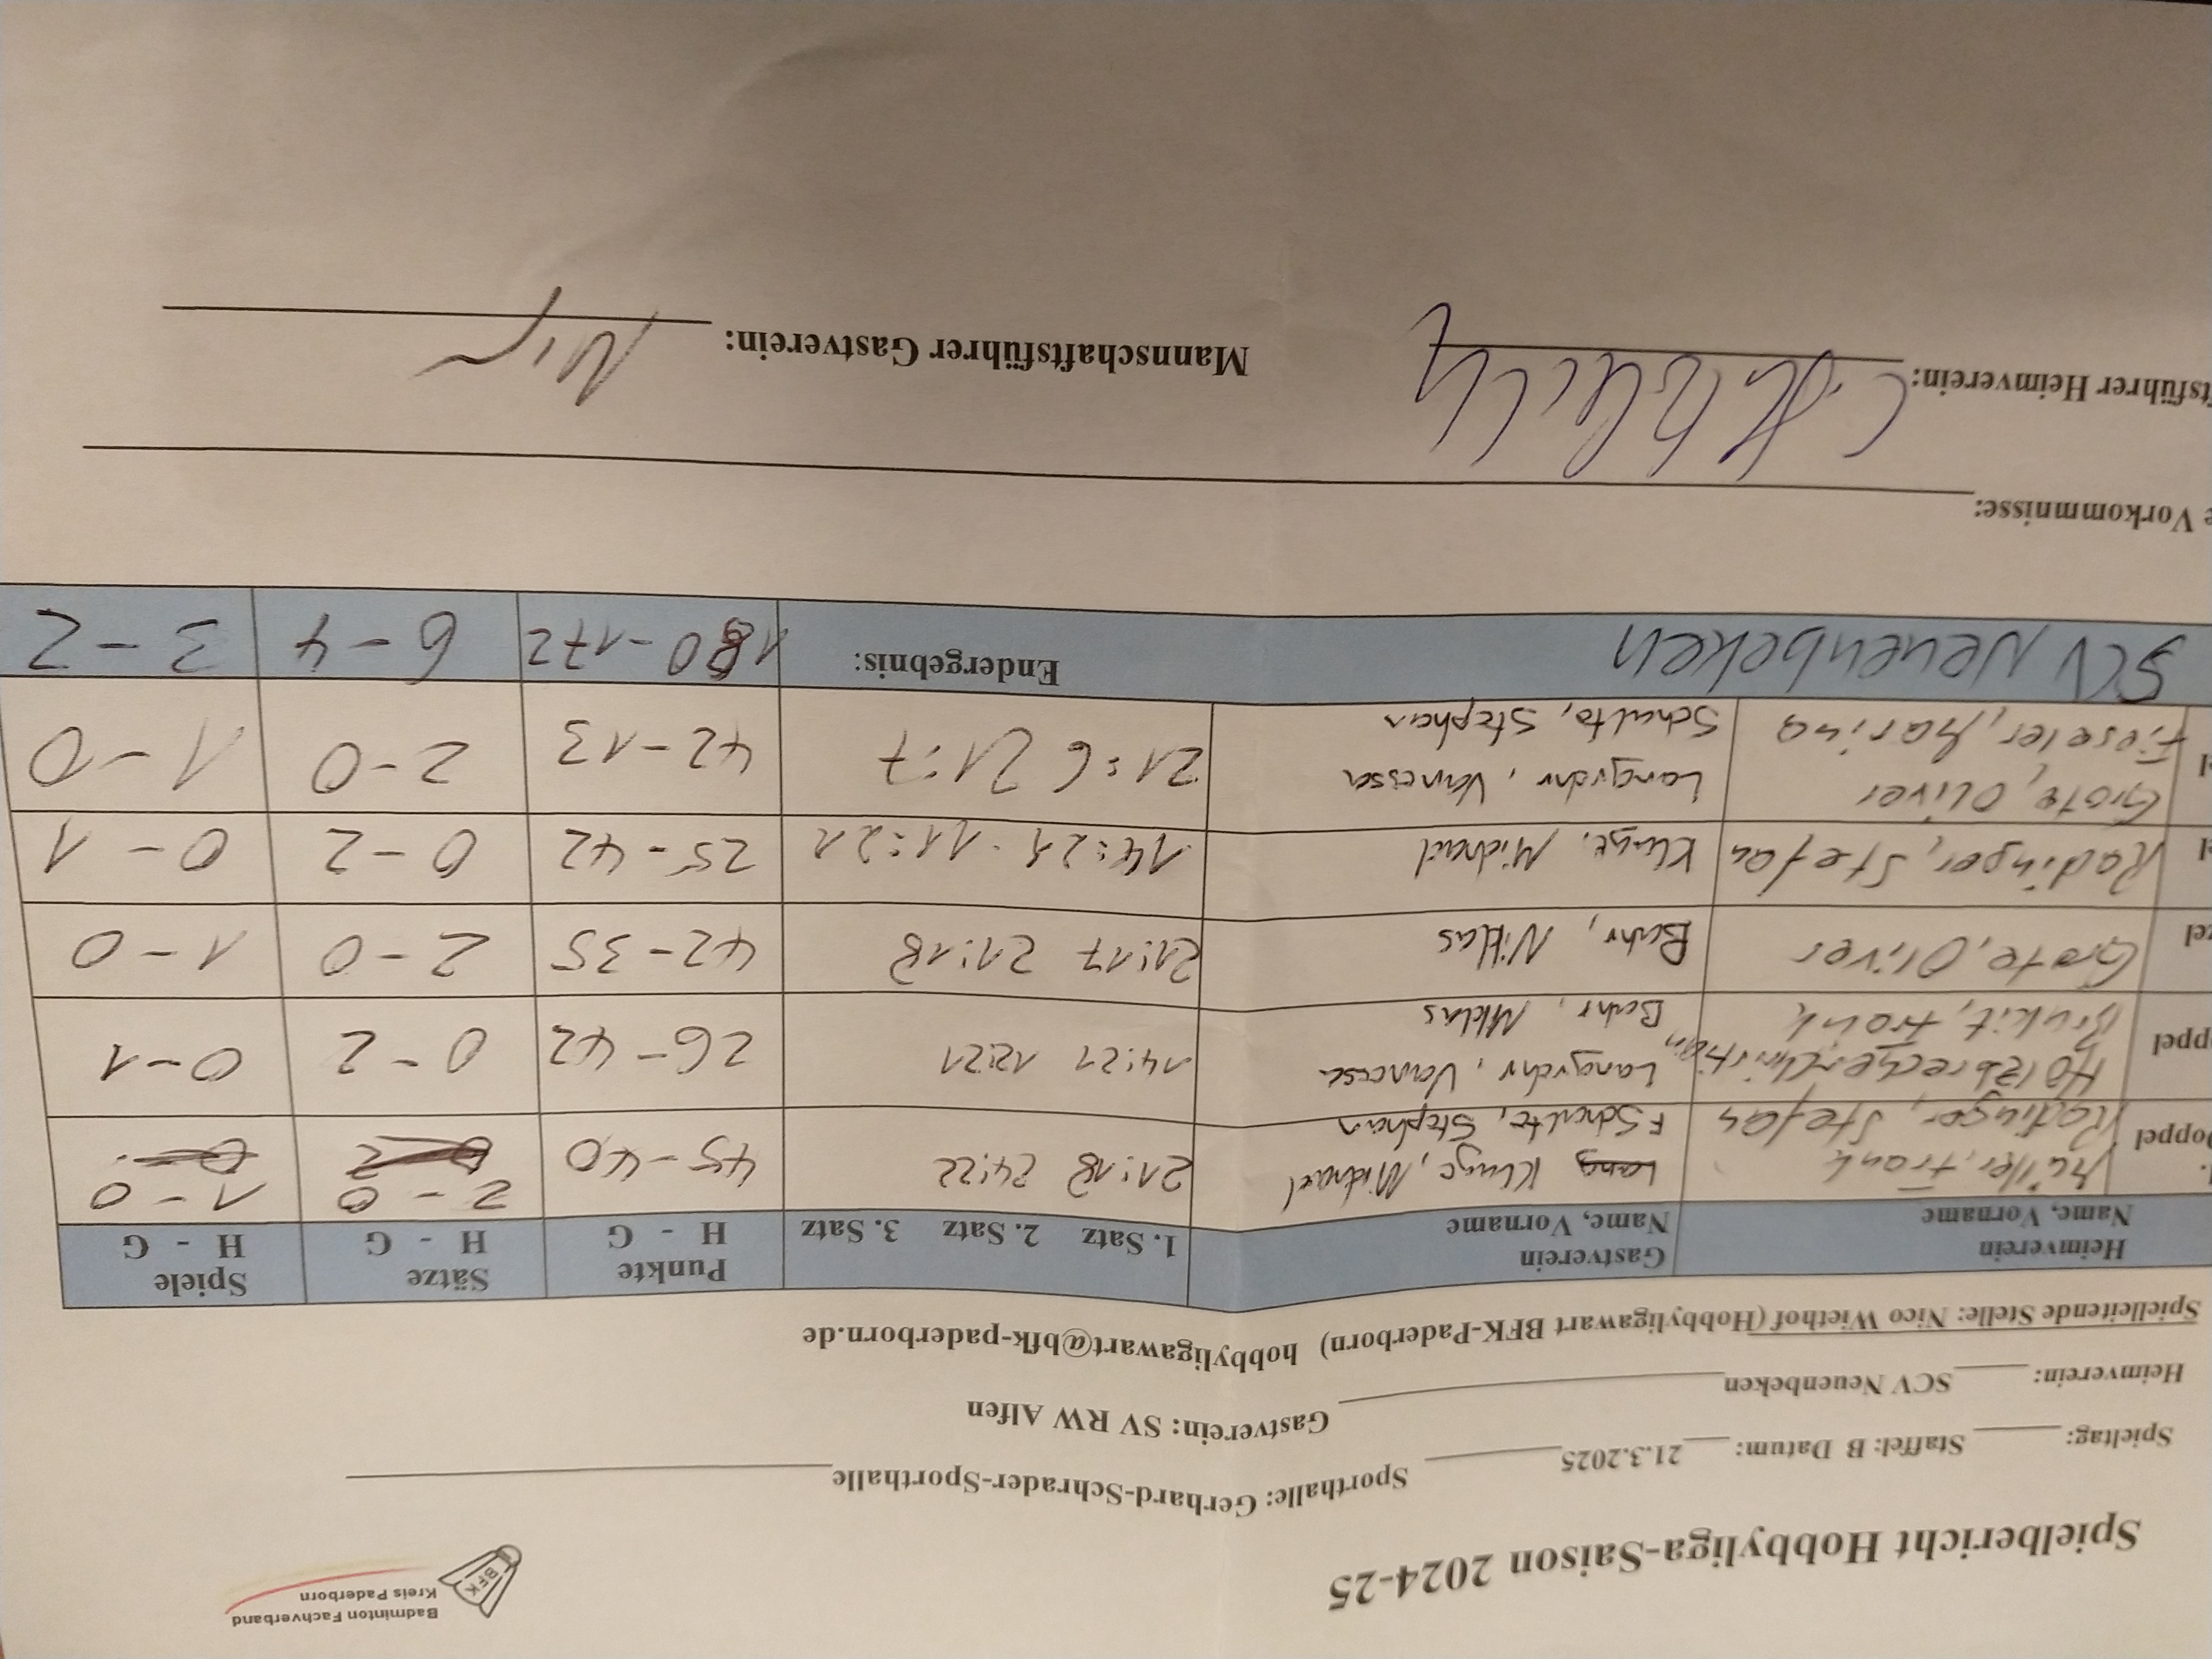 Badminton Fachverband
Kreis Paderborn
BFK
Spielbericht Hobbyliga-Saison 2024-25
Spieltag: Staffel: B Datum: 21.3.2025 Sporthalle: Gerhard-Schrader-Sporthalle
Heimverein: SCV Neuenbeken Gastverein: SV RW Alfen
Spielleitende Stelle: Nico Wiethof (Hobbyligawart BFK-Paderborn) hobbyligawart@bfk-paderborn.de
Heimverein Gastverein Punkte Sätze Spiele
Name, Vorname Name, Vorname 1. Satz 2. Satz 3. Satz H - G H - G H - G
Doppel Müller, Frank Lang Kluge, Michael 21:18 24:22 45-40 2-0 1-0
Radinger, Stefan Schulte, Stephan
ppel Holzbrecher, Christian, Langrehr, Vanessa 14:21 12:21 26-42 0-2 0-1
Brukit, Frank Bahr, Niklas
zel Grote, Oliver Bahr, Niklas 21:17 21:18 42-35 2-0 1-0
el Radinger, Stefan Kluge, Michael 14:21 11:21 25-42 0-2 0-1
el Grote, Oliver Langrehr, Vanessa 21:6 21:7 42-13 2-0 1-0
Fieseler, Marina Schulte, Stephan
SCV Neuenbeken Endergebnis: 180-172 6-4 3-2
e Vorkommnisse:
tsführer Heimverein: Mannschaftsführer Gastverein: